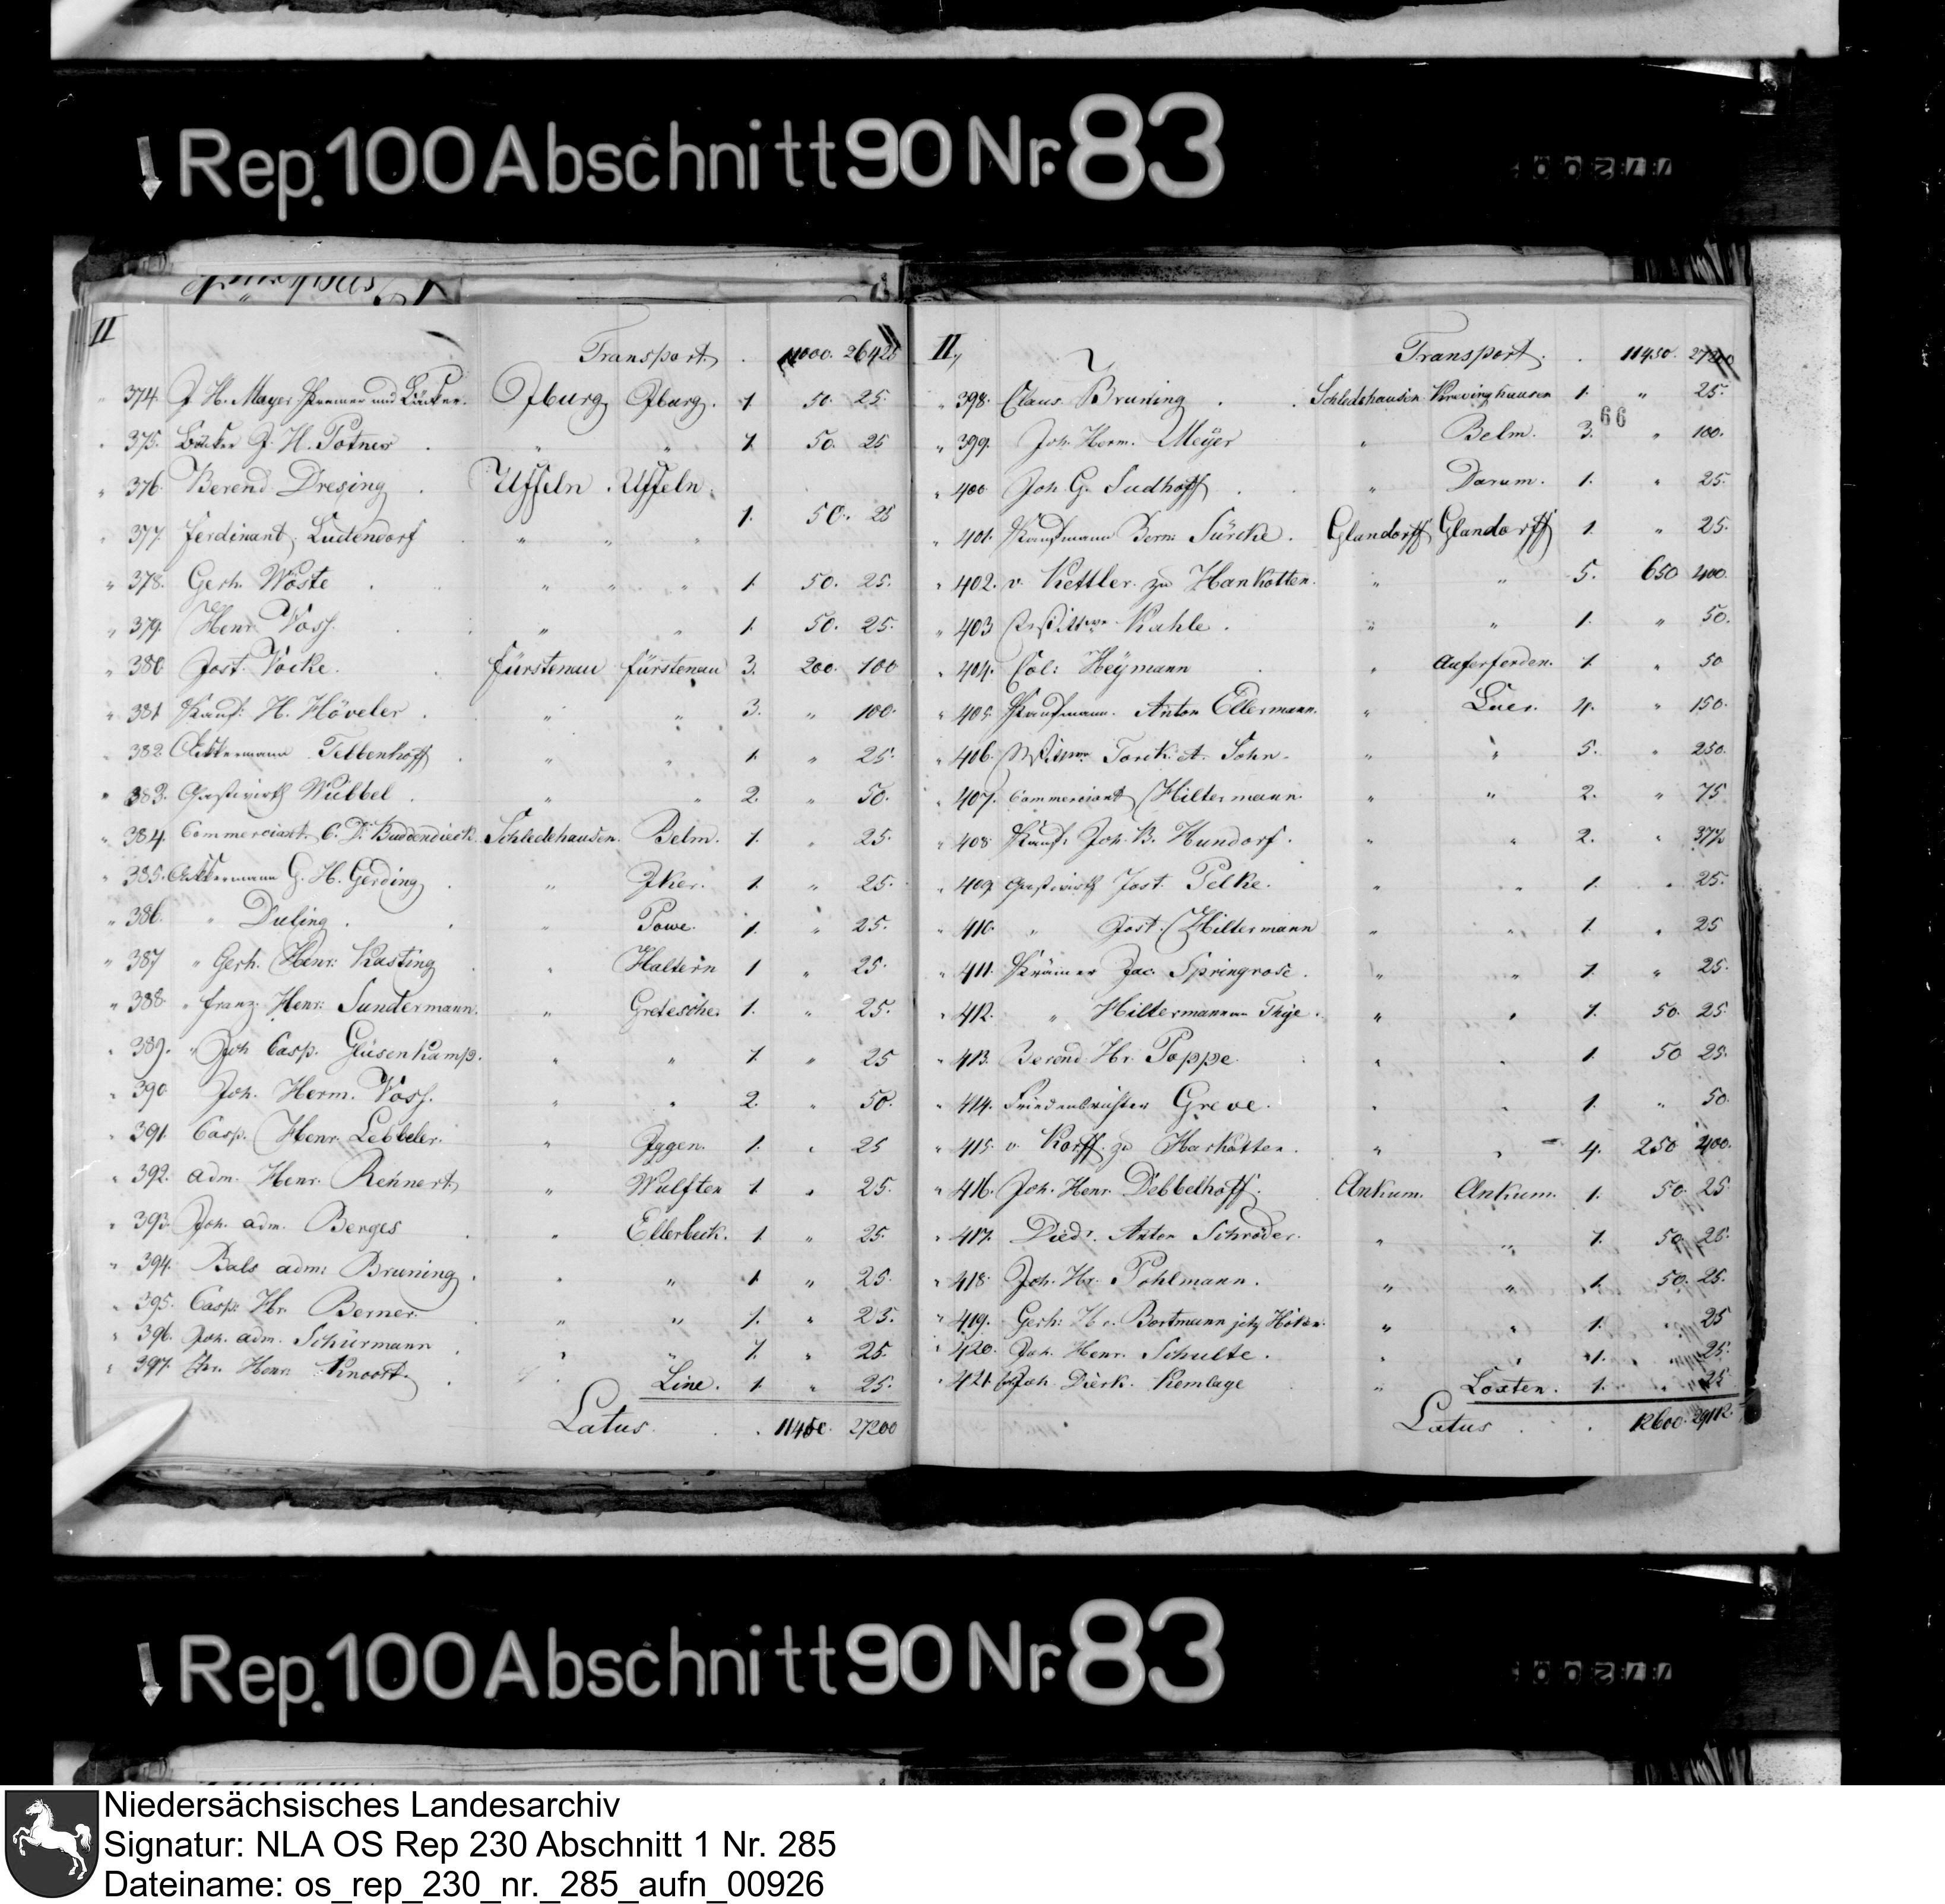 Rep. 100 Abschnitt 90 Nr. 83
II
Transport. . 11000. 26425
" 374. J. H. Mayer Kramer und Bäcker. Iburg Iburg. 1. 50. 25.
" 375. Bäcker J. H. Potner . " " 1. 50. 25
" 376. Berend Dresing . Uffeln . Uffeln.
1. 50. 25
" 377. Ferdinant Ludendorf " " "
" 378. Gerh. Wöste . " " " 1. 50. 25.
" 379. Henr. Voss. . " " 1. 50. 25.
" 380. Jost. Vocke. . Fürstenau Fürstenau 3. 200. 100
" 381. Kauf: H. Höveler . " " 3. " 100.
" 382. Ackermann Telbenhoff . " " 1. " 25.
" 383. Gastwirth Wübbel . " " 2. " 50.
" 384. Commerciant C. D. Buddendieck. Schledehausen. Belm. 1. " 25.
" 385. Ackermann G. H. Gerding . " Iker. 1. " 25.
" 386. " Duling . . " Powe. 1. " 25.
" 387 " Gerh. Henr: Kasting . " Haltern 1 " 25.
" 388. " Franz. Henr: Sundermann. " Gretesche. 1. " 25.
" 389. " Joh Casp. Glüsenkamp. " " 1. " 25
" 390. Joh. Herm. Voss. " " 2. " 50.
" 391. Casp. Henr. Lebbeler. " Jggen. 1. " 25
" 392. adm. Henr. Rehnert " Wulften 1. " 25.
" 393. Joh. adm. Berges . " Ellerbeck. 1. " 25.
" 394. Bals adm: Bruning . " " 1. " 25.
" 395. Casp: Hr. Berner. . " " 1. " 25.
" 396. Joh. adm. Schürmann . " " 1. " 25.
" 397. Hr. Henr. Knoort. . " Line. 1. " 25.
Latus . . 11450. 27200
II.,
Transport. . 11450. 27200
" 398. Claus Bruning . . Schledehausen Krevinghausen 1. " 25.
66
" 399. Joh. Herm. Meÿer " Belm. 3. " 100.
" 400. Joh. G. Sudhoff . . " Darum. 1. " 25.
" 401. Kaufmann Bern: Türcke . Glandorff Glandorff 1. " 25.
" 402. v. Kettler. zu Harkotten. " " 5. 650 400.
" 403 Kahle . " " 1. " 50.
" 404. Col: Heÿmann . " Auferferden. 1. " 50
" 405. Kaufmann. Anton Ellermann. " Laer. 4. " 150.
" 406. Sohn. " " 5. " 250.
" 407. Commerciant Hiltermann. " " 2. " 75
" 408. Kauf: Joh. B. Hundorf. " " 2. " 37½
" 409. Gastwirth Jost. Pelke. " " 1. " 25.
" 410. " Jost. Hiltermann " " 1. " 25
" 411. Krämer Jac. Springrose. " " 1. " 25.
" 412. " Hiltermann Thÿe. " " 1. 50. 25
" 413. Berend Hr. Poppe. " " 1. 50 25.
" 414. Friedensrichter Greve. " " 1. " 50.
" 415. v. Korff. zu Harkotten. " " 4. 250 400.
" 416. Joh. Henr. Debbelhoff. Ankum. Ankum. 1. 50. 25.
" 417. Died: Anton Schröder. " " 1. 50. 25.
" 418. Joh. Hr. Pohlmann. " " 1. 50. 25.
" 419. Gerh: Hr. Bortmann jetz Höten. " " 1. 25
" 420. Joh. Henr. Schulte. " " 1. 25.
" 421. Joh Dierk. Kemlage " Loxten. 1. " 25
Latus . . 12600. 29112.
Rep. 100 Abschnitt 90 Nr. 83
Niedersächsisches Landesarchiv
Signatur: NLA OS Rep 230 Abschnitt 1 Nr. 285
Dateiname: os_rep_230_nr._285_aufn_00926